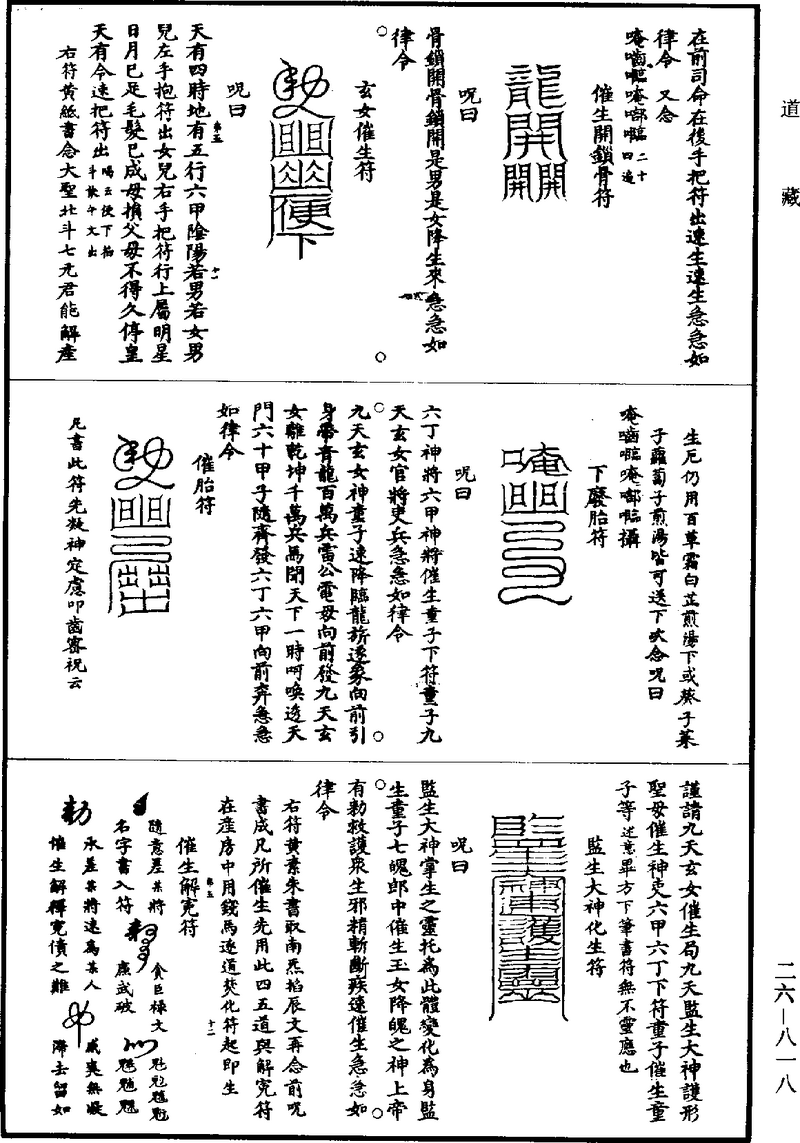 道藏
在前司命在後手把符出速生速生急急如
律令　又念
唵嚙𠾱唵啷𠾱二十四遍
催生開鎖骨符
龍開開開
呪曰
骨鎖開骨鎖開是男是女降生來急急如
律令
玄女催生符
呪曰
天有四時地有五行六甲陰陽若男若女男
兒左手抱符出女兒右手把符行上屬明星
日月已足毛髮已成母損父母不得久停皇
天有令速把符出
右符黃紙書念大聖北斗七元君能解產
生厄仍用百草霜白芷煎湯下或葵子萊
子蘿蔔子煎湯皆可送下吹念呪曰
下廢胎符
呪曰
六丁神將六甲神將催生童子下符童子九
天玄女官將吏兵急急如律令
九天玄女神童子速降臨龍旂逐象向前引
身帶青龍百萬兵雷公電母向前發九天玄
女離乾坤千萬兵馬開天下一時呵喚透天
門六十甲子隨齊發六丁六甲向前奔急急
如律令
催胎符
凡書此符先凝神定慮叩齒密祝云
謹請九天玄女催生局九天監生大神護形
聖母催生神吏六甲六丁下符童子催生童
子等述意畢方下筆書符無不靈應也
監生大神化生符
呪曰
監生大神掌生之靈托為此體變化為身監
生童子七魄郎中催生玉女降魄之神上帝
有勑救護衆生邪精斬斷疾速催生急急如
律令
右符黃素朱書取南炁掐辰文再念前呪
書成凡所催生先用此四五道與解寃符
在產房中用錢馬逐道焚化符起即生
催生解寃符
隨意差某將
名字書入符
貪巨祿文
廉武破
勑
承差某將速為某人
催生解釋寃債之難
威奭無凝
降去留如
二六—八一八